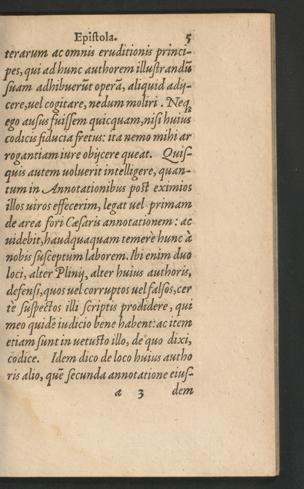 Epiſtola. 5
terarum ac omnis eruditionis princi-
pes, qui ad hunc authorem illuſtrandũ
ſuam adhibuerũt operã, aliquid adij-
cere, uel cogitare, nedum moliri. Neq;
ego auſus fuiſſem quicquam, niſi huius
codicis fiducia fretus: ita nemo mihi ar
rogantiam iure obijcere queat. Quiſ-
quis autem uoluerit intelligere, quan-
tum in Annotationibus poſt eximios
illos uiros effecerim, legat uel primam
de area fori Cæſaris annotationem: ac
uidebit, haudquaquam temerè hunc à
nobis ſuſceptum laborem. Ibi enim duo
loci, alter Plinij, alter huius authoris,
defenſi, quos uel corruptos uel falſos, cer
tè ſuſpectos illi ſcriptis prodidere, qui
meo quidẽ iudicio bene habent: ac item
etiam ſunt in uetuſto illo, de quo dixi,
codice. Idem dico de loco huius autho
ris alio, quẽ ſecunda annotatione eiuſ-
a 3 dem